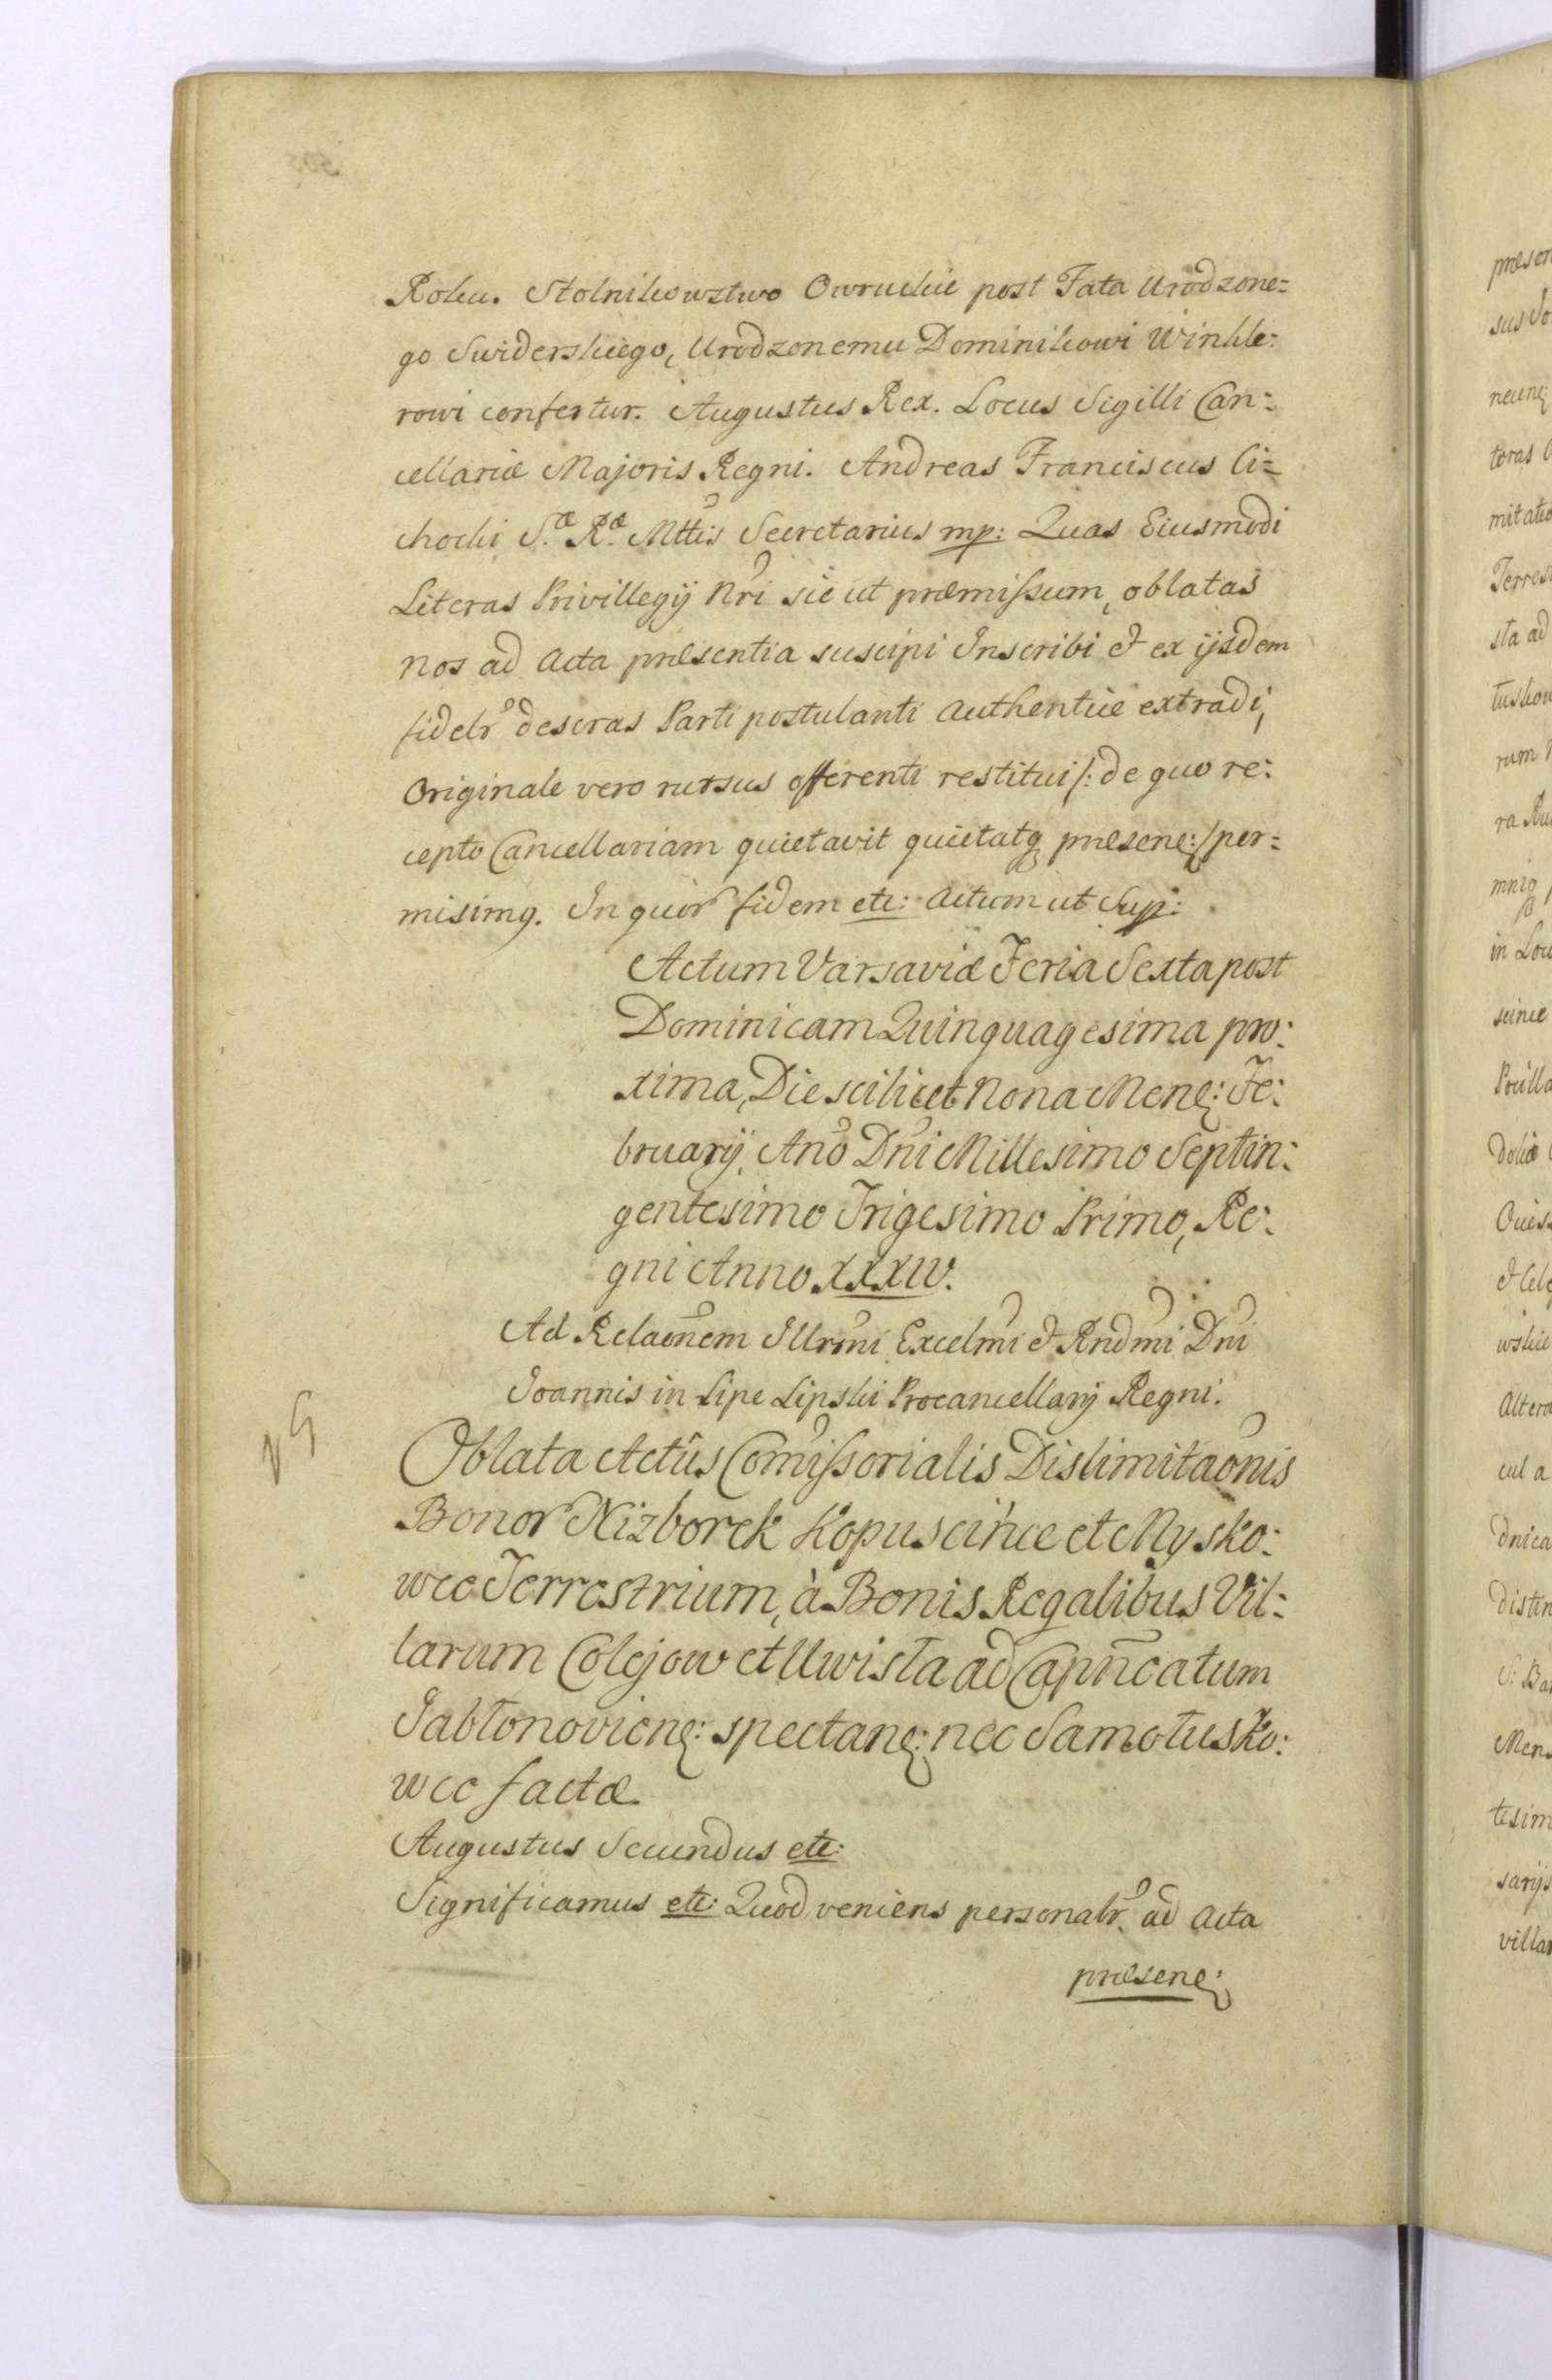 Roku. Stolnikowstwo Owruckie post Fata Urodzone=
go Swiderskiego, Urodzonemu Dominikowi Winkle:
rowi confertur. Augustus Rex. Locus Sigilli Can:
cellariæ Majoris Regni. Andreas Franciscus Ci=
chocki S.æ R.æ Mttis Secretarius mp: Quas Eiusmodi
Literas Privillegij Nri sic ut præmissum, oblatas
nos ad Acta præsentia suscipi Inscribi & ex ijsdem
fidelr descras Parti postulanti Authentice extradi,
Originale vero rursus offerenti restitui /: de quo re:
cepto Cancellariam quietavit quietatq præsenę:/ per=
misimq. In quor fidem etc: Actum ut Sup:
Actum Varsaviæ Feria Sexta post
Dominicam Quinquagesima pro:
xima, Die scilicet Nona Menę: Fe:
bruarij, Ano Dni Millesimo Septin:
gentesimo Trigesimo Primo, Re:
gni Anno XXXIV.
Ad Relaonem Illrmi Excelmi & Rndmi Dni
Joannis in Lipe Lipski Procancellarij Regni.
Oblata Actûs Comissorialis Dislimitaonis
Bonor Nizborek Kopuscińce et Mysko:
wce Terrestrium, à Bonis Regalibus Vil:
larum Colejow et Uwisła ad Capnēatum
Jabłonovicnę: spectanę: nec Samołusko:
wce factæ
Augustus Secundus etc:
Significamus etc: Quod veniens personalr ad Acta
præsenę: